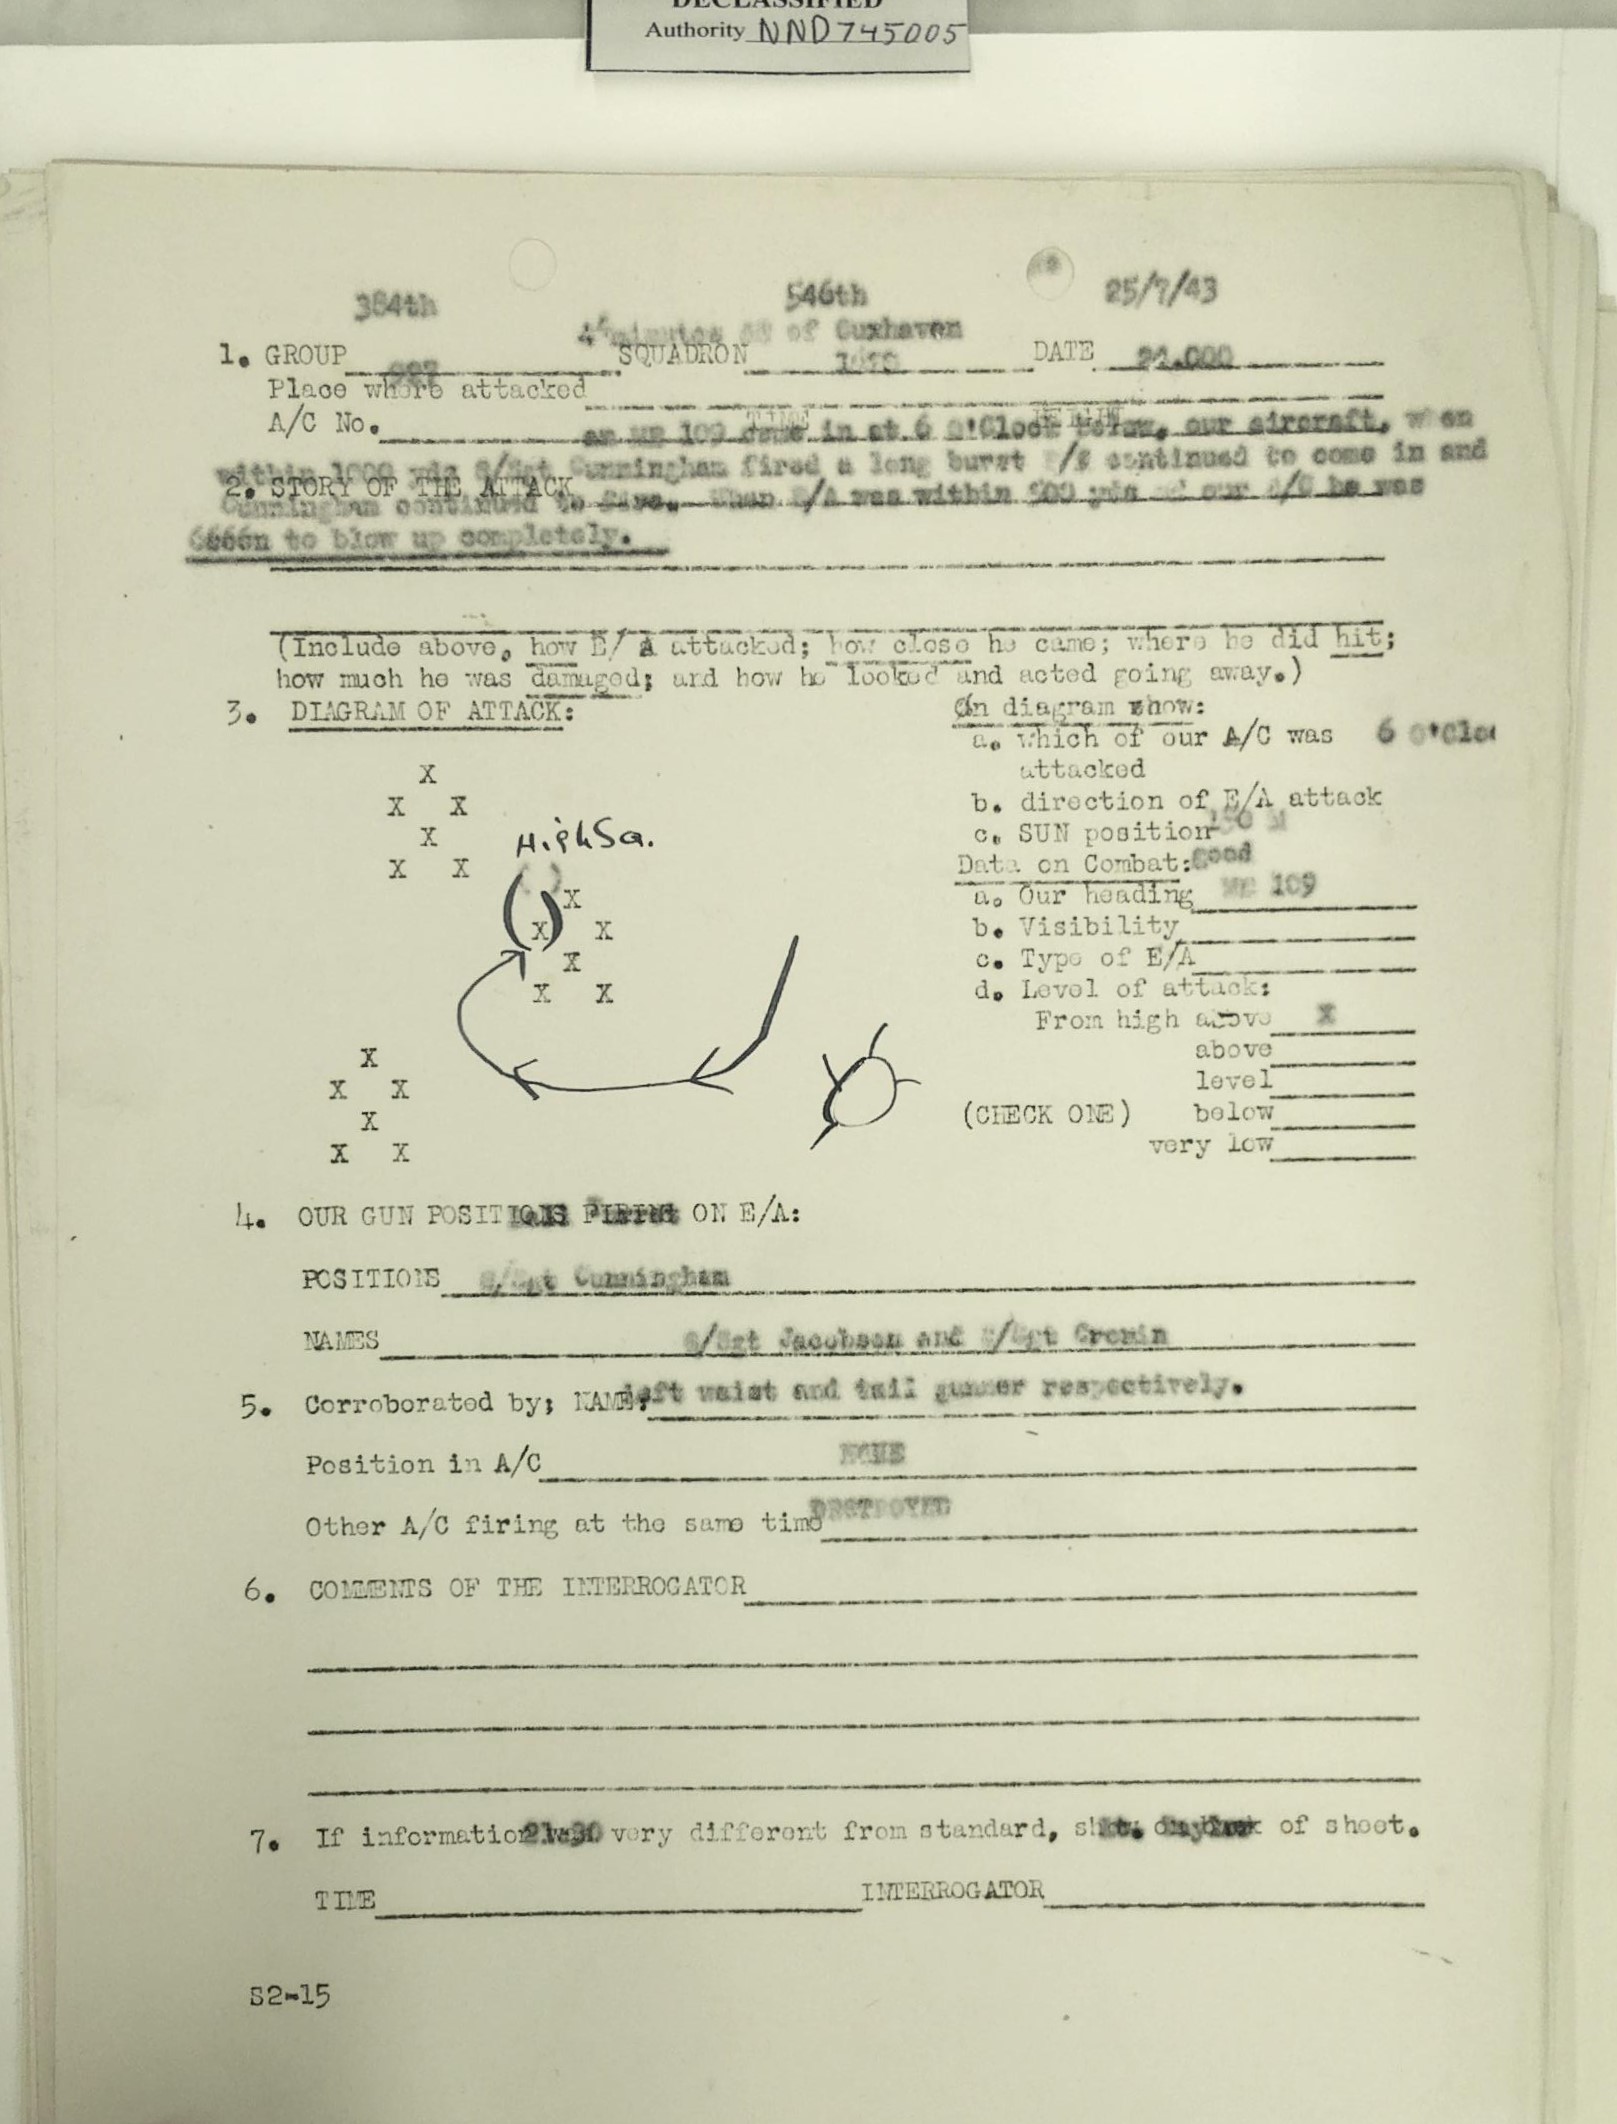 DECLASSIFIED
Authority NND745005
384th 546th 25/7/43
4 minutes of Cuxhaven
1. GROUP SQUADRON DATE 24.000
Place where attacked
A/C No. TIME
an ME 109 came in at 6 O'Clock below, our aircraft, when
within 1000 yds S/Sgt Cunningham fired a long burst continued to come in and
2. STORY OF THE ATTACK
Cunningham continued to fire. When E/A was within yds of our A/C he was
seen to blow up completely.
(Include above, how E/A attacked; how close he came; where he did hit;
how much he was damaged; and how he looked and acted going away.)
3. DIAGRAM OF ATTACK: On diagram show:
a. which of our A/C was 6 O'Cloc
attacked
b. direction of E/A attack
c. SUN position
Data on Combat: good
a. Our heading ME 109
b. Visibility
c. Type of E/A
d. Level of attack:
From high above X
above
level
(CHECK ONE) below
very low
X
X X
X
X X
High Sq.
( ) X
X X
X
X X
X
X X
X
X X
4. OUR GUN POSITIONS ON E/A:
POSITIONS S/Sgt Cunningham
NAMES S/Sgt Jacobson and S/Sgt Cronin
5. Corroborated by; NAME: left waist and tail gunner respectively.
Position in A/C NONE
Other A/C firing at the same time DESTROYED
6. COMMENTS OF THE INTERROGATOR
7. If information very different from standard, of sheet.
TIME INTERROGATOR
S2-15